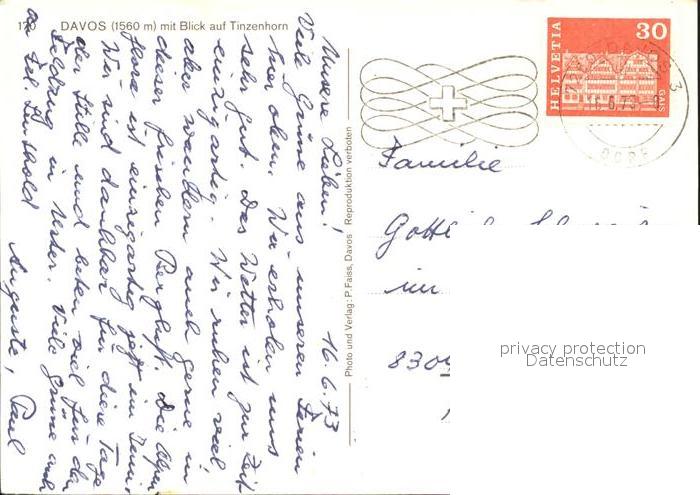 170 DAVOS (1560 m) mit Blick auf Tinzenhorn
16.6.73
Unsere Lieben!
Viele Grüsse aus unseren Ferien
hier oben. Wir erholen uns
sehr gut. Das Wetter ist zur Zeit
einzigartig. Wir ruhen viel,
aber wandern auch gerne in
dieser frischen Bergluft. Die Alpen
flora ist einzigartig jetzt im Juni.
Wir sind dankbar für diese Tage
der Stille und beten viel für den
Feldzug in Uster. Viele Grüsse auch
an Fel. Leuthold
Auguste, Paul
Photo und Verlag: P. Faiss, Davos Reproduktion verboten
HELVETIA
30
GAIS
16.6.73
Familie
im
8304
privacy protection
Datenschutz